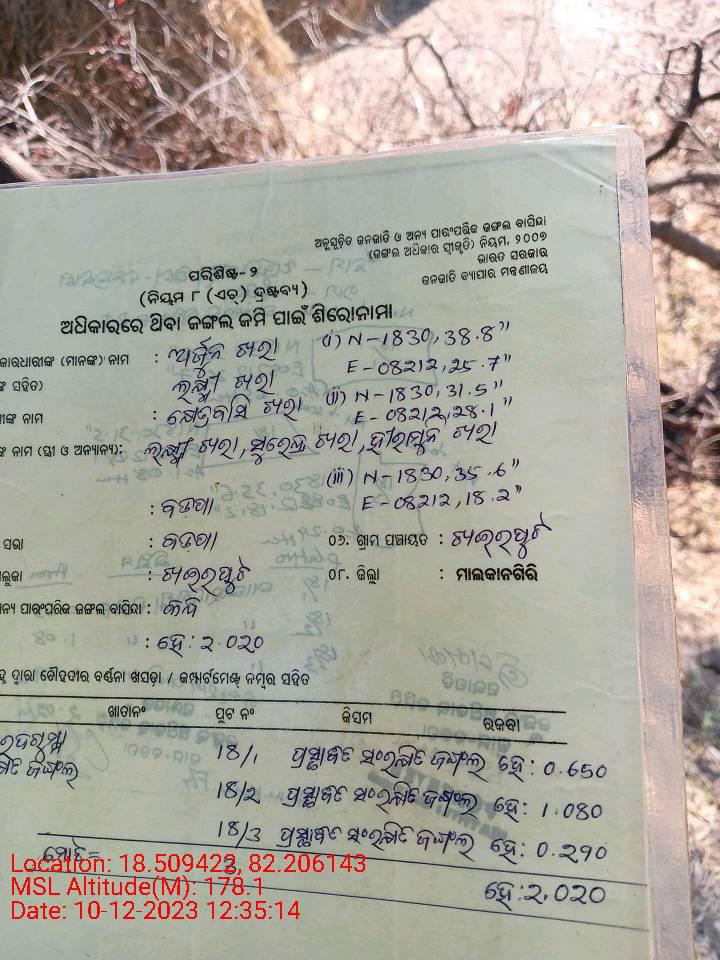 ଅନୁସୂଚିତ ଜନଜାତି ଓ ଅନ୍ୟ ପାରଂପରିକ ଜଙ୍ଗଲ ବାସିନ୍ଦା
(ଜଙ୍ଗଲ ଅଧିକାର ସ୍ୱୀକୃତି) ନିୟମ, ୨୦୦୭
ଭାରତ ସରକାର
ଜନଜାତି ବ୍ୟାପାର ମନ୍ତ୍ରଣାଳୟ
ପରିଶିଷ୍ଟ-୨
(ନିୟମ ୮ (ଏଚ୍) ଦ୍ରଷ୍ଟବ୍ୟ)
ଅଧିକାରରେ ଥିବା ଜଙ୍ଗଲ ଜମି ପାଇଁ ଶିରୋନାମା
କାରଧାରୀଙ୍କ (ମାନଙ୍କ) ନାମ : ଅର୍ଜୁନ ଖରା (i) N-1830, 38.8"
E-08212, 25.7"
ସହିତ) ଲକ୍ଷ୍ମୀ ଖରା (ii) N-1830, 31.5"
ନାମ : କ୍ଷେତ୍ରବାସି ଖରା E-08212, 28.1"
ନାମ (ସ୍ତ୍ରୀ ଓ ଅନ୍ୟାନ୍ୟ): ଲକ୍ଷ୍ମୀ ଖରା, ସୁରେନ୍ଦ୍ର ଖରା, ହୀରାମୁନି ଖରା
(iii) N-1830, 35.6"
: ବଡ଼ପଦା E-08212, 18.2"
ସଭା : ବଡ଼ପଦା ୦୬. ଗ୍ରାମ ପଞ୍ଚାୟତ : ଖଇରପୁଟ
: ଖଇରପୁଟ ୦୮. ଜିଲ୍ଲା : ମାଲକାନଗିରି
ପାରଂପରିକ ଜଙ୍ଗଲ ବାସିନ୍ଦା :
: ହେ: ୨.୦୨୦
ଦ୍ୱାରା ଚୌହଦୀର ବର୍ଣ୍ଣନା ଖସଡ଼ା / କମ୍ପାର୍ଟମେଣ୍ଟ ନମ୍ବର ସହିତ
ଖାତାନଂ ପ୍ଲଟ ନଂ କିସମ ରକବା
18/1 ପ୍ରସ୍ତାବିତ ସଂରକ୍ଷିତ ଜଙ୍ଗଲ ହେ: 0.650
ଜଙ୍ଗଲ 18/2 ପ୍ରସ୍ତାବିତ ସଂରକ୍ଷିତ ଜଙ୍ଗଲ ହେ: 1.080
18/3 ପ୍ରସ୍ତାବିତ ସଂରକ୍ଷିତ ଜଙ୍ଗଲ ହେ: 0.290
ମୋଟ= 3 ହେ: 2.020
Location: 18.509422, 82.206143
MSL Altitude(M): 178.1
Date: 10-12-2023 12:35:14